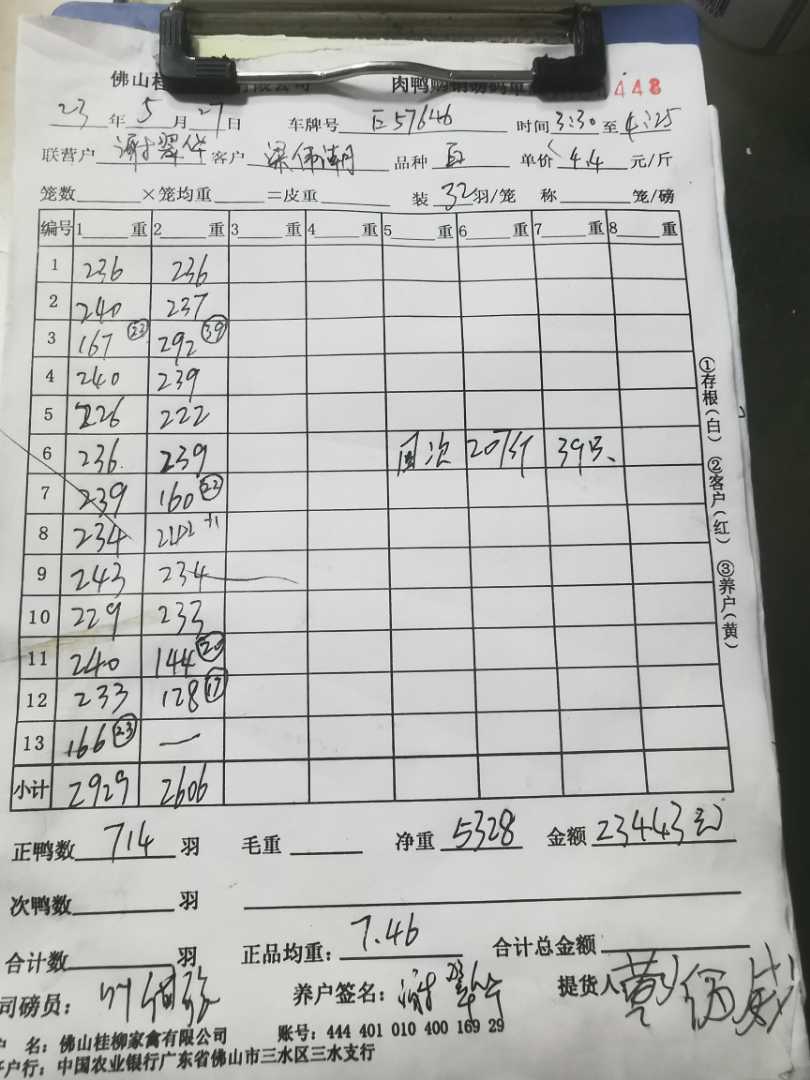 佛山桂
肉鸭购销磅码单 448
23年5月27日 车牌号 E57646 时间3:30至4:25
联营户 谢翠华 客户 梁伟潮 品种 单价 4.4 元/斤
笼数 ×笼均重 =皮重 装 32 羽/笼 称 笼/磅
编号 1 重 2 重 3 重 4 重 5 重 6 重 7 重 8 重
1 236 236
2 240 237
3 167 (22) 292 (39)
4 240 239
5 226 222
6 236. 239 次 20斤 39只
7 239 160 (22)
8 234 242 +1
9 243 234
10 229 233
11 240 144 (20)
12 233 128 (17)
13 166 (23) —
小计 2929 2606
①存根(白) ②客户(红) ③养户(黄)
正鸭数 714 羽 毛重 净重 5328 金额 23443元
次鸭数 羽
合计数 羽 正品均重: 7.46 合计总金额
司磅员: 养户签名: 谢翠华 提货人
户 名: 佛山桂柳家禽有限公司 账号: 444 401 010 400 169 29
开户行: 中国农业银行广东省佛山市三水区三水支行